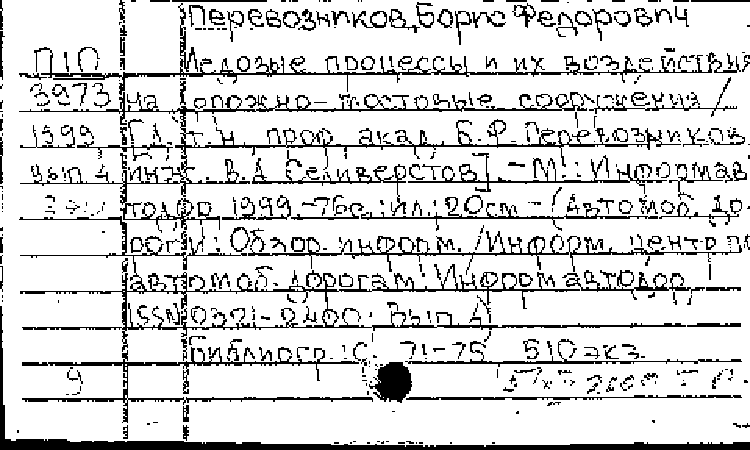 Перевозников, Борис Федорович
П10 Ледовые процессы и их воздействия
3973 на дорожно-мостовые сооружения /
1999 [Д. т. н. проф. акад. Б. Ф. Перевозников,
вып. 4 инж. В. А. Селиверстов]. - М.: Информав
тодор, 1999. - 76с.: ил.; 20см - (Автомоб. до-
роги: Обзор. информ. / Информ. центр по
автомоб. дорогам "Информавтодор"
ISSN 0321-2400; Вып. 4)
Библиогр.: С. 71-75 510 экз.
9